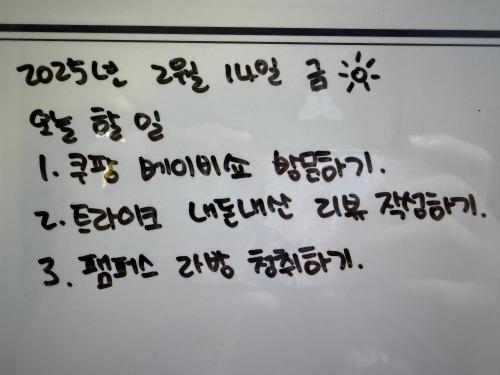 2025년 2월 14일 금 ☀
오늘 할 일
1. 쿠팡 베이비쇼 방문하기.
2. 트라이크 내돈내산 리뷰 작성하기.
3. 팸퍼스 라방 청취하기.